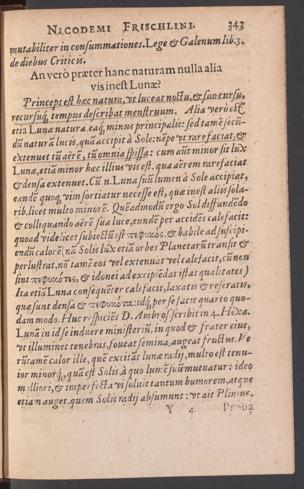 NICODEMI FRISCHLINI. 343
mutabiliter in consummationes. Lege & Galenum lib. 3.
de diebus Criticis.
An verò præter hanc naturam nulla alia
vis inest Lunæ?
Princeps est hæc natura, vt luceat noctu, & suo cursu,
recursuq́, tempus describat menstruum. Alia verò est
etiã Lunæ natura eaq́, minus principalis: sed tamē secū-
dū naturā lucis, quā accipit à Sole: nēpe vt rarefaciat, &
extenuet tū aērē, tū omnia spissa: cum aūt minor sit lux
Lunæ, etiā minor hæc illius vis est, qua aërem rarefaciat
& densa extenuet. Cū n. Luna suū lumen à Sole accipiat,
eandē quoq́, vim sortiatur necesse est, quæ inest alijs sola-
rib. licet multo minorē. Quēadmodū ergo Sol diffundēdo
& colliquando aērē sua luce, eundē per accidēs calefacit:
quoad videlicet subiectū est πεφυκὸς, & habile ad suscipi-
endū calorē, nā Solis lux etiā orbes Planetarū transit &
perlustrat, nō tamē eos vel extenuat vel calefacit, cū non
sint πεφυκότες, & idonei ad excipiēdas istas qualitates)
Ita etiā Luna consequēter calefacit, laxatis & referatis,
quæ sunt densa & per se facit quarto quo-
dam modo. Huc respiciēs D. Ambros scribit in 4. Hexa.
Lunā in id se induere ministeriū, in quod & frater eius,
vt illuminet tenebras, foueat semina, augeat fructus. Ve
rūtamē calor ille, quē excitāt lunæ radij, multo est tenu-
ior minorq́, quā est Solis, à quo lumē suū mutuatur: ideo
molliori, & imperfecta vi soluit tantum humorem, atque
etiā n auget, quem Solis radij absumunt: vt ait Plinius.
Y 4